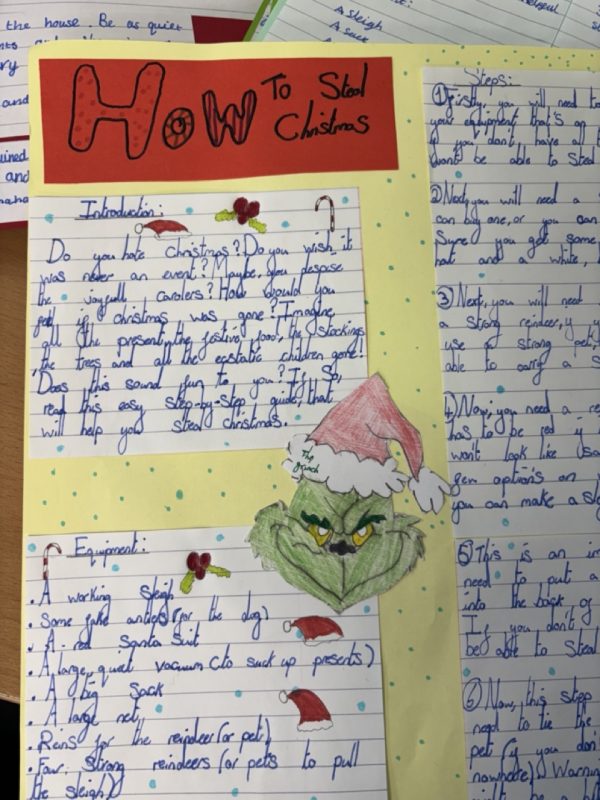 the house. Be as quiet
and
and
A sleigh
A sack
HoW To Steal
Christmas
Introduction:
Do you hate christmas? Do you wish it
was never an event? Maybe, you despise
the joyfull carolers? How would you
feel if christmas was gone? Imagine,
all the present, the festive food, the stockings
, the trees and all the ecstatic children gone!
Does this sound fun to you? If so,
read this easy step-by-step guide, that
will help you steal christmas.
The
grinch
Equipment:
• A working sleigh
• Some fake antlers (for the dog)
• A red Santa Suit
• A large, quiet vacuum (to suck up presents)
• A big Sack
• A large net
• Reins for the reindeer (or pet)
• Four, Strong reindeers (or pets to pull
the sleigh)
Steps:
① Firstly, you will need to
your equipment, that's on
if you don't have all
won't be able to Steal
② Next, you will need a
can buy one, or you can
Sure you get some
hat and a white,
③ Next, you will need
a strong reindeer, if y
use a strong pet,
able to carry a S
④ Now, you need a re
has to be red if
won't look like (Sa
gem options on
you can make a sle
⑤ This is an im
need to put a
into the back of
If you don't
be able to Steal
⑥ Now, this step
need to tie the
pet (if you don'
nowhere) Warnin